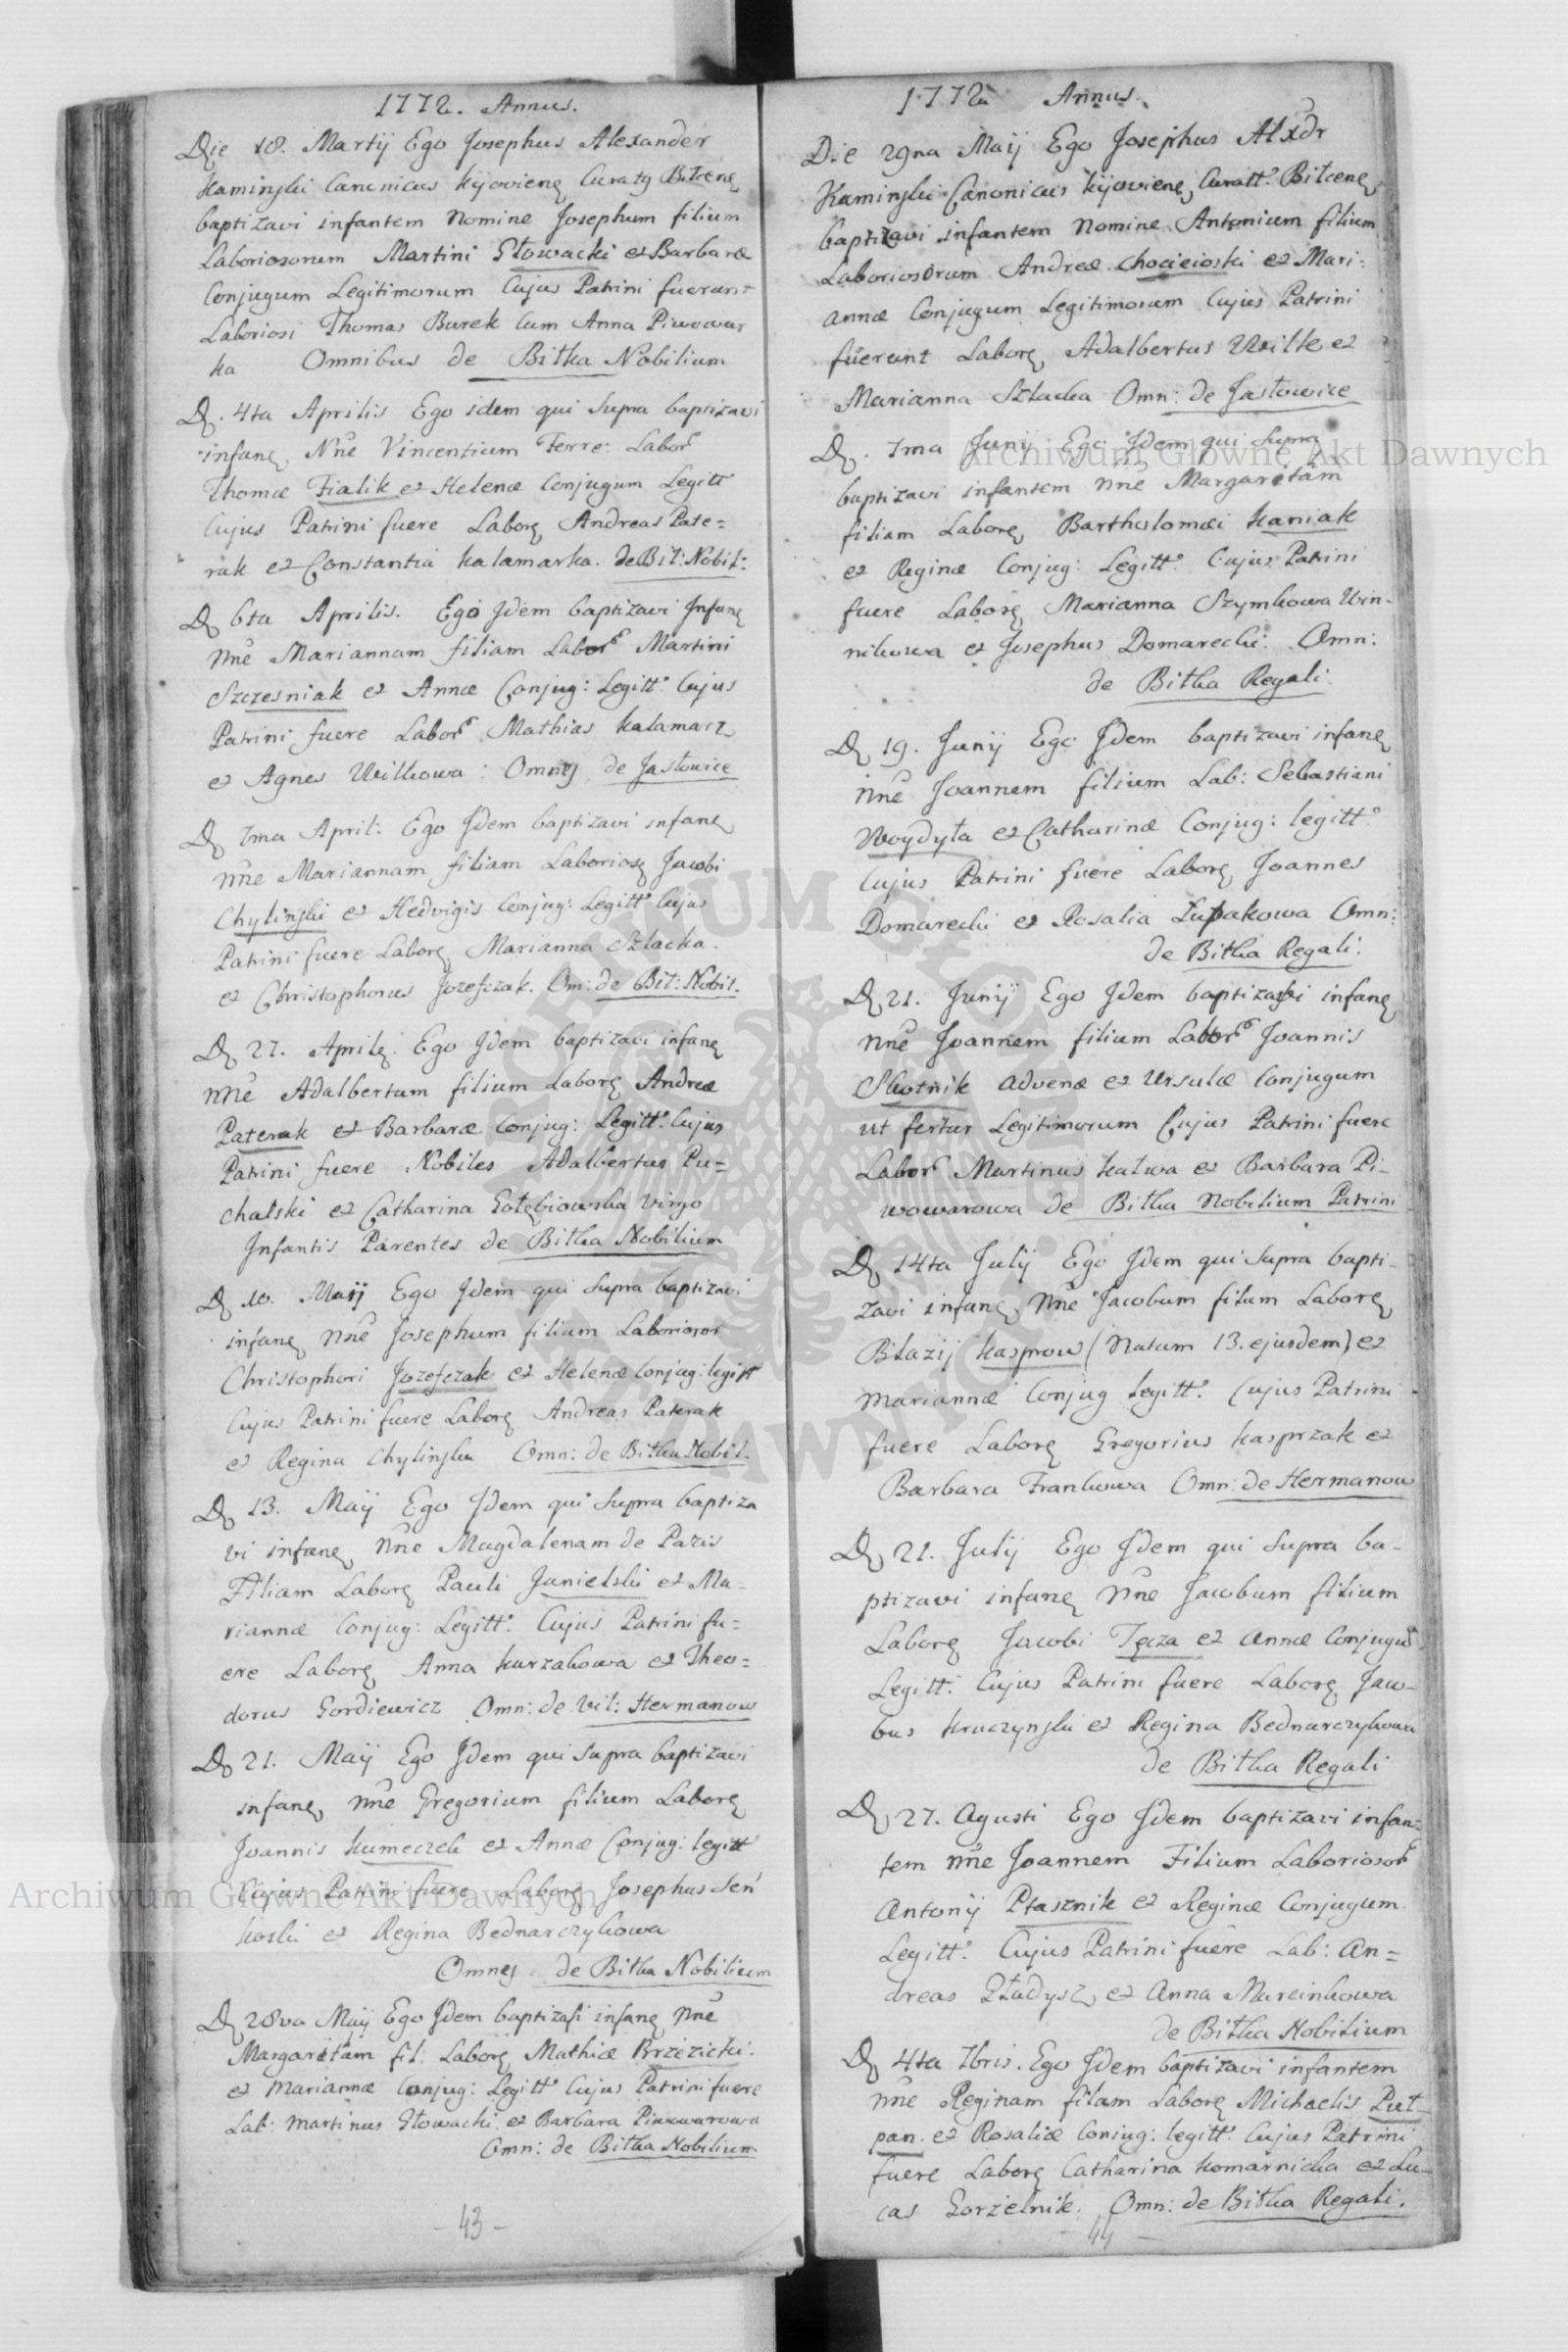 1772. Annus.
Die 18. Martij Ego Josephus Alexander
Kaminski Canonicus Kijovienę Curatg Bitcenę
baptizavi infantem Nomine Josephum filium
Laboriosorum Martini Głowacki et Barbaræ
Conjugum Legitimorum Cujus Patrini fuerunt
Laboriosi Thomas Burek cum Anna Piwowar
ka Omnibus de Bitka Nobilium
D. 4ta Aprilis Ego idem qui supra baptizavi
infanę Nne Vincentium Ferre: Labor
Thomæ Fialik et Helenæ Conjugum Legitt
Cujus Patrini fuere Laborę Andreas Pate=
rak et Constantia Kalamarka. de Bit: Nobil:
D 6ta Aprilis. Ego Jdem baptizavi Jnfanę
Nne Mariannam filiam Labor Martini
Szczesniak et Annæ Conjug: Legitt. Cujus
Patrini fuere Labor Mathias Kalamarz
et Agnes Wilkowa: Omnes de Jasłowice
D 7ma April: Ego Jdem baptizavi infanę
Nne Mariannam filiam Laboriosę Jacobi
Chylinski et Hedvigis Conjug: Legitt. Cujus
Patrini fuere Laborę Marianna Szlacka.
et Christophorus Jozefczak. Om: de Bit: Nobil.
D 27. Aprilę. Ego Jdem baptizavi infanę
Nne Adalbertum filium Laborę Andreæ
Paterak et Barbaræ Conjug: Legitt. Cujus
Patrini fuere Nobiles Adalbertus Pu=
chalski et Catharina Gołębiowska Virgo
Jnfantis Parentes de Bitka Nobilium
D 10. Maij Ego Jdem qui supra baptizavi
infanę Nne Josephum filium Laboriosor
Christophori Jozefczak et Helenæ Conjug: legitt
Cujus Patrini fuere Laborę Andreas Paterak
et Regina Chylinska Omn: de Bitka Nobil.
D 13. Maij Ego Jdem qui supra baptiza
vi infanę Nne Magdalenam de Pazis
Filiam Laborę Pauli Janielski et Ma=
riannæ Conjug: Legitt. Cujus Patrini fu=
ere Laborę Anna Kurzakowa et Theo=
dorus Gordiewicz Omn: de Vil: Hermanow
D 21. Maij Ego Jdem qui supra baptizavi
infanę Nne Gregorium filium Laborę
Joannis Kumeczek et Annæ Conjug: legitt
Cujus Patrini fuere Laborę Josephus Sen
koski et Regina Bednarczykowa
Omnes de Bitka Nobilium
D 28va Maij Ego Jdem baptizavi infanę Nne
Margaritam fil: Laborę Mathiæ Brzezicki.
et Mariannæ Conjug: Legitt Cujus Patrini fuere
Lab: Martinus Głowacki et Barbara Piwowarowa
Omn: de Bitka Nobilium
- 43 -
1772 Annus.
Die 29na Maij Ego Josephus Alxdr
Kaminski Canonicus Kijovienę Curatt. Bitcenę
baptizavi infantem Nomine Antonium filium
Laboriosorum Andreæ Chocieioski et Mari:
annæ Conjugum Legitimorum Cujus Patrini
fuerunt Laborę Adalbertus Wilk et
Marianna Szlacka Omn: de Jasłowice
D. 7ma Junij Ego Jdem qui supra
baptizavi infantem Nne Margaritam
filiam Laborę Bartholomæi Kaniak
et Reginæ Conjug: Legitt. Cujus Patrini
fuere Laborę Marianna Szymkowa Win-
nikowa et Josephus Domarecki: Omn:
de Bitka Regali.
D 19. Junij Ego Jdem baptizavi infanę
Nne Joannem filium Lab: Sebastiani
Woydyła et Catharinæ Conjug: legitt.
Cujus Patrini fuere Laborę Joannes
Domarecki et Rosalia Łupakowa Omn:
de Bitka Regali.
D 21. Junij Ego Jdem baptizavi infanę
Nne Joannem filium Labor Joannis
Skotnik advenæ et Ursulæ Conjugum
ut fertur Legitimorum Cujus Patrini fuere
Labor Martinus Kaława et Barbara Pi-
wowarowa de Bitka Nobilium Patrini
D 14ta Julij Ego Jdem qui supra bapti-
zavi infanę Nne Jacobum filium Laborę
Błazij Kasprow (Natum 13. ejusdem) et
Mariannæ Conjug Legitt. Cujus Patrini
fuere Laborę Gregorius Kasprzak et
Barbara Frankowa Omn: de Hermanow
D 21. Julij Ego Jdem qui supra ba-
ptizavi infanę Nne Jacobum filium
Laborę Jacobi Tęcza et Annæ Conjugu
Legitt. Cujus Patrini fuere Laborę Jaco-
bus Kruczynski et Regina Bednarczykowa
de Bitka Regali
D 27. Agusti Ego Jdem baptizavi infan=
tem Nne Joannem Filium Laboriosor
Antonij Ptasznik et Reginæ Conjugum
Legitt. Cujus Patrini fuere Lab: An=
dreas Gładysz et Anna Marcinkowa
de Bitka Nobilium
D 4ta 7bris. Ego Jdem baptizavi infantem
Nne Reginam filam Laborę Michaelis Put-
pan. et Rosaliæ Coniug: legitt. Cujus Patrini
fuere Laborę Catharina Komarnicka et Lu-
cas Gorzelnik. Omn: de Bitka Regali.
- 44 -
Archiwum Główne Akt Dawnych
Archiwum Główne Akt Dawnych
ARCHIWUM GŁÓWNE AKT DAWNYCH